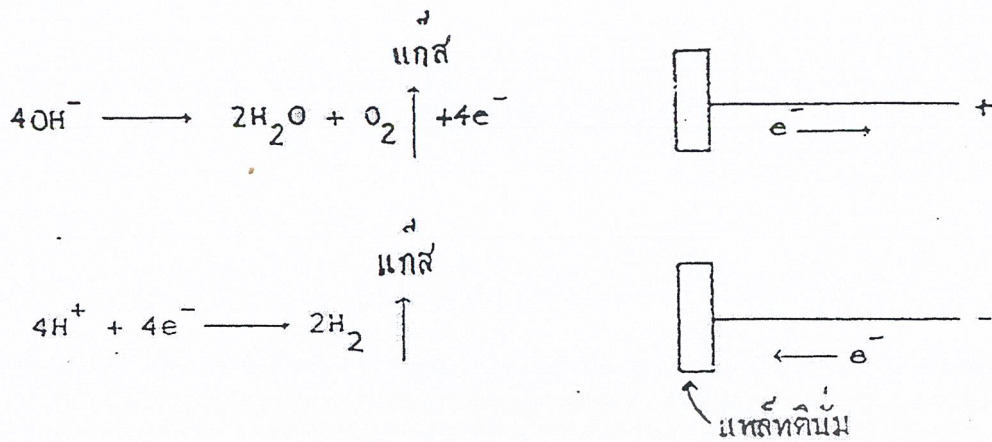 แก๊ส
4OH⁻ ⟶ 2H₂O + O₂ ↑ +4e⁻
e⁻ ⟶ +
แก๊ส
4H⁺ + 4e⁻ ⟶ 2H₂ ↑
⟵ e⁻ -
แพล็ทตินั่ม